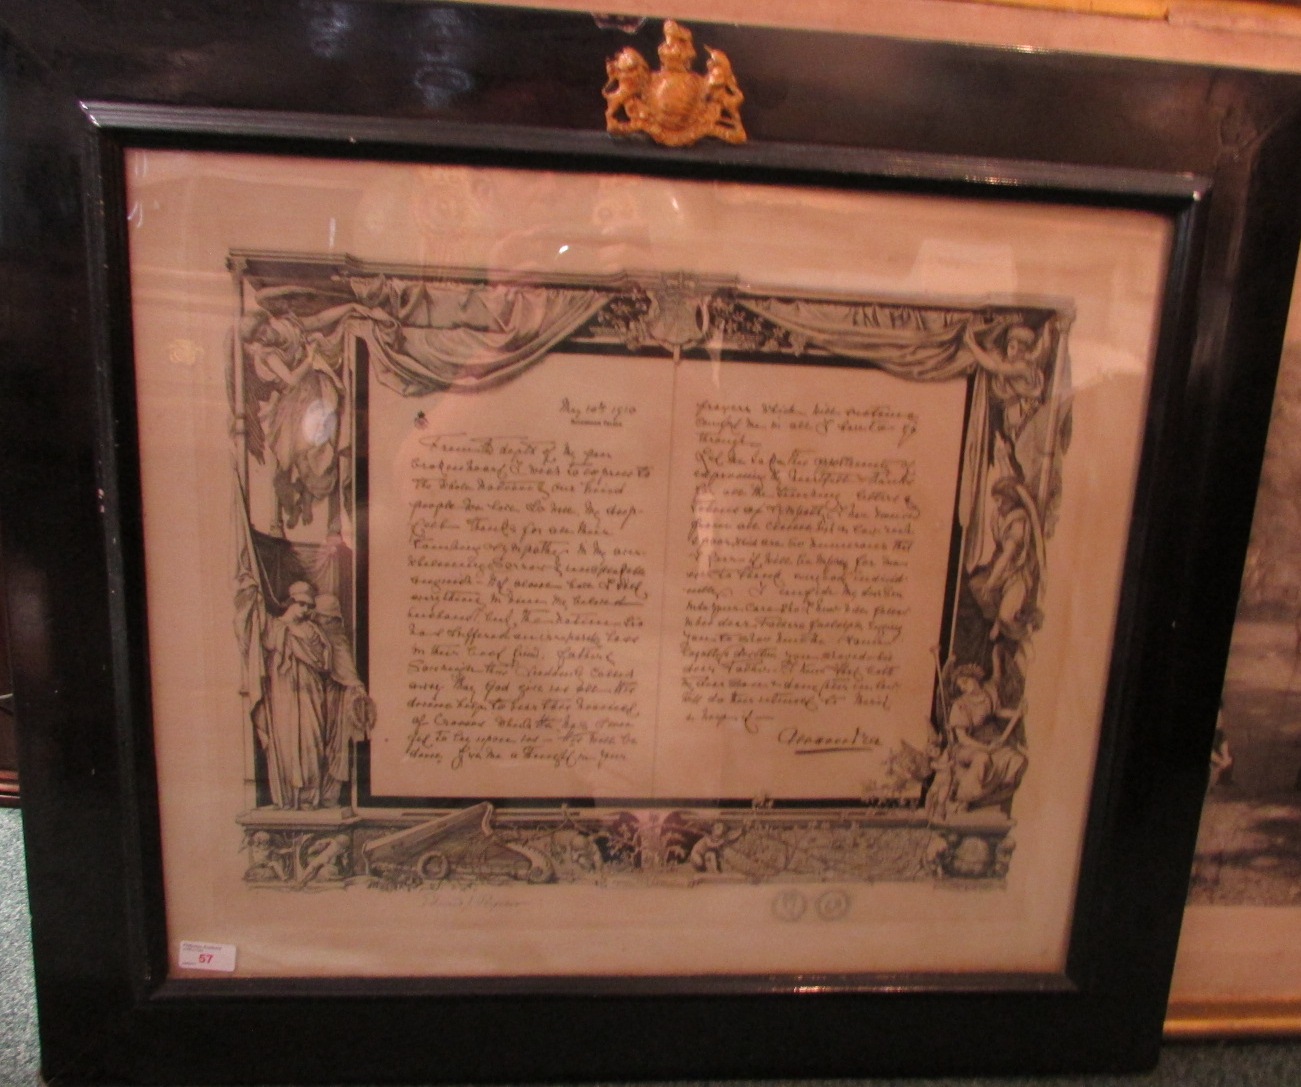 May 10th 1910
Buckingham Palace
From the depth of my poor
broken heart, I wish to express to
the whole nation & our kind
people we love so well my deep-
felt thanks for all their
touching sympathy in my over-
whelming sorrow & unspeakable
anguish. Not alone have I lost
everything in Him, my beloved
husband, but the nation too
has suffered an irreparable loss
in their best friend, father &
Sovereign thus suddenly called
away. May God give us all His
divine help to bear this heaviest
of Crosses which He has
to lay upon us — His will be
done. Give me a thought in your
prayers which will
me in all I have to go
through.
Let me take this opportunity of
expressing my heartfelt thanks
for all the touching letters &
tokens of sympathy I have
from all classes high & low, rich
& poor, which are so numerous that
I fear it will be impossible for me
ever to thank everybody individ-
ually. I confide my dear Son
into your care who I know will follow
in his dear Father's footsteps, begging
you to show him the same
loyalty & devotion you showed his
dear Father. I know that both
my dear Son & daughter in law
will do their utmost to merit
& keep it —
Alexandra
57